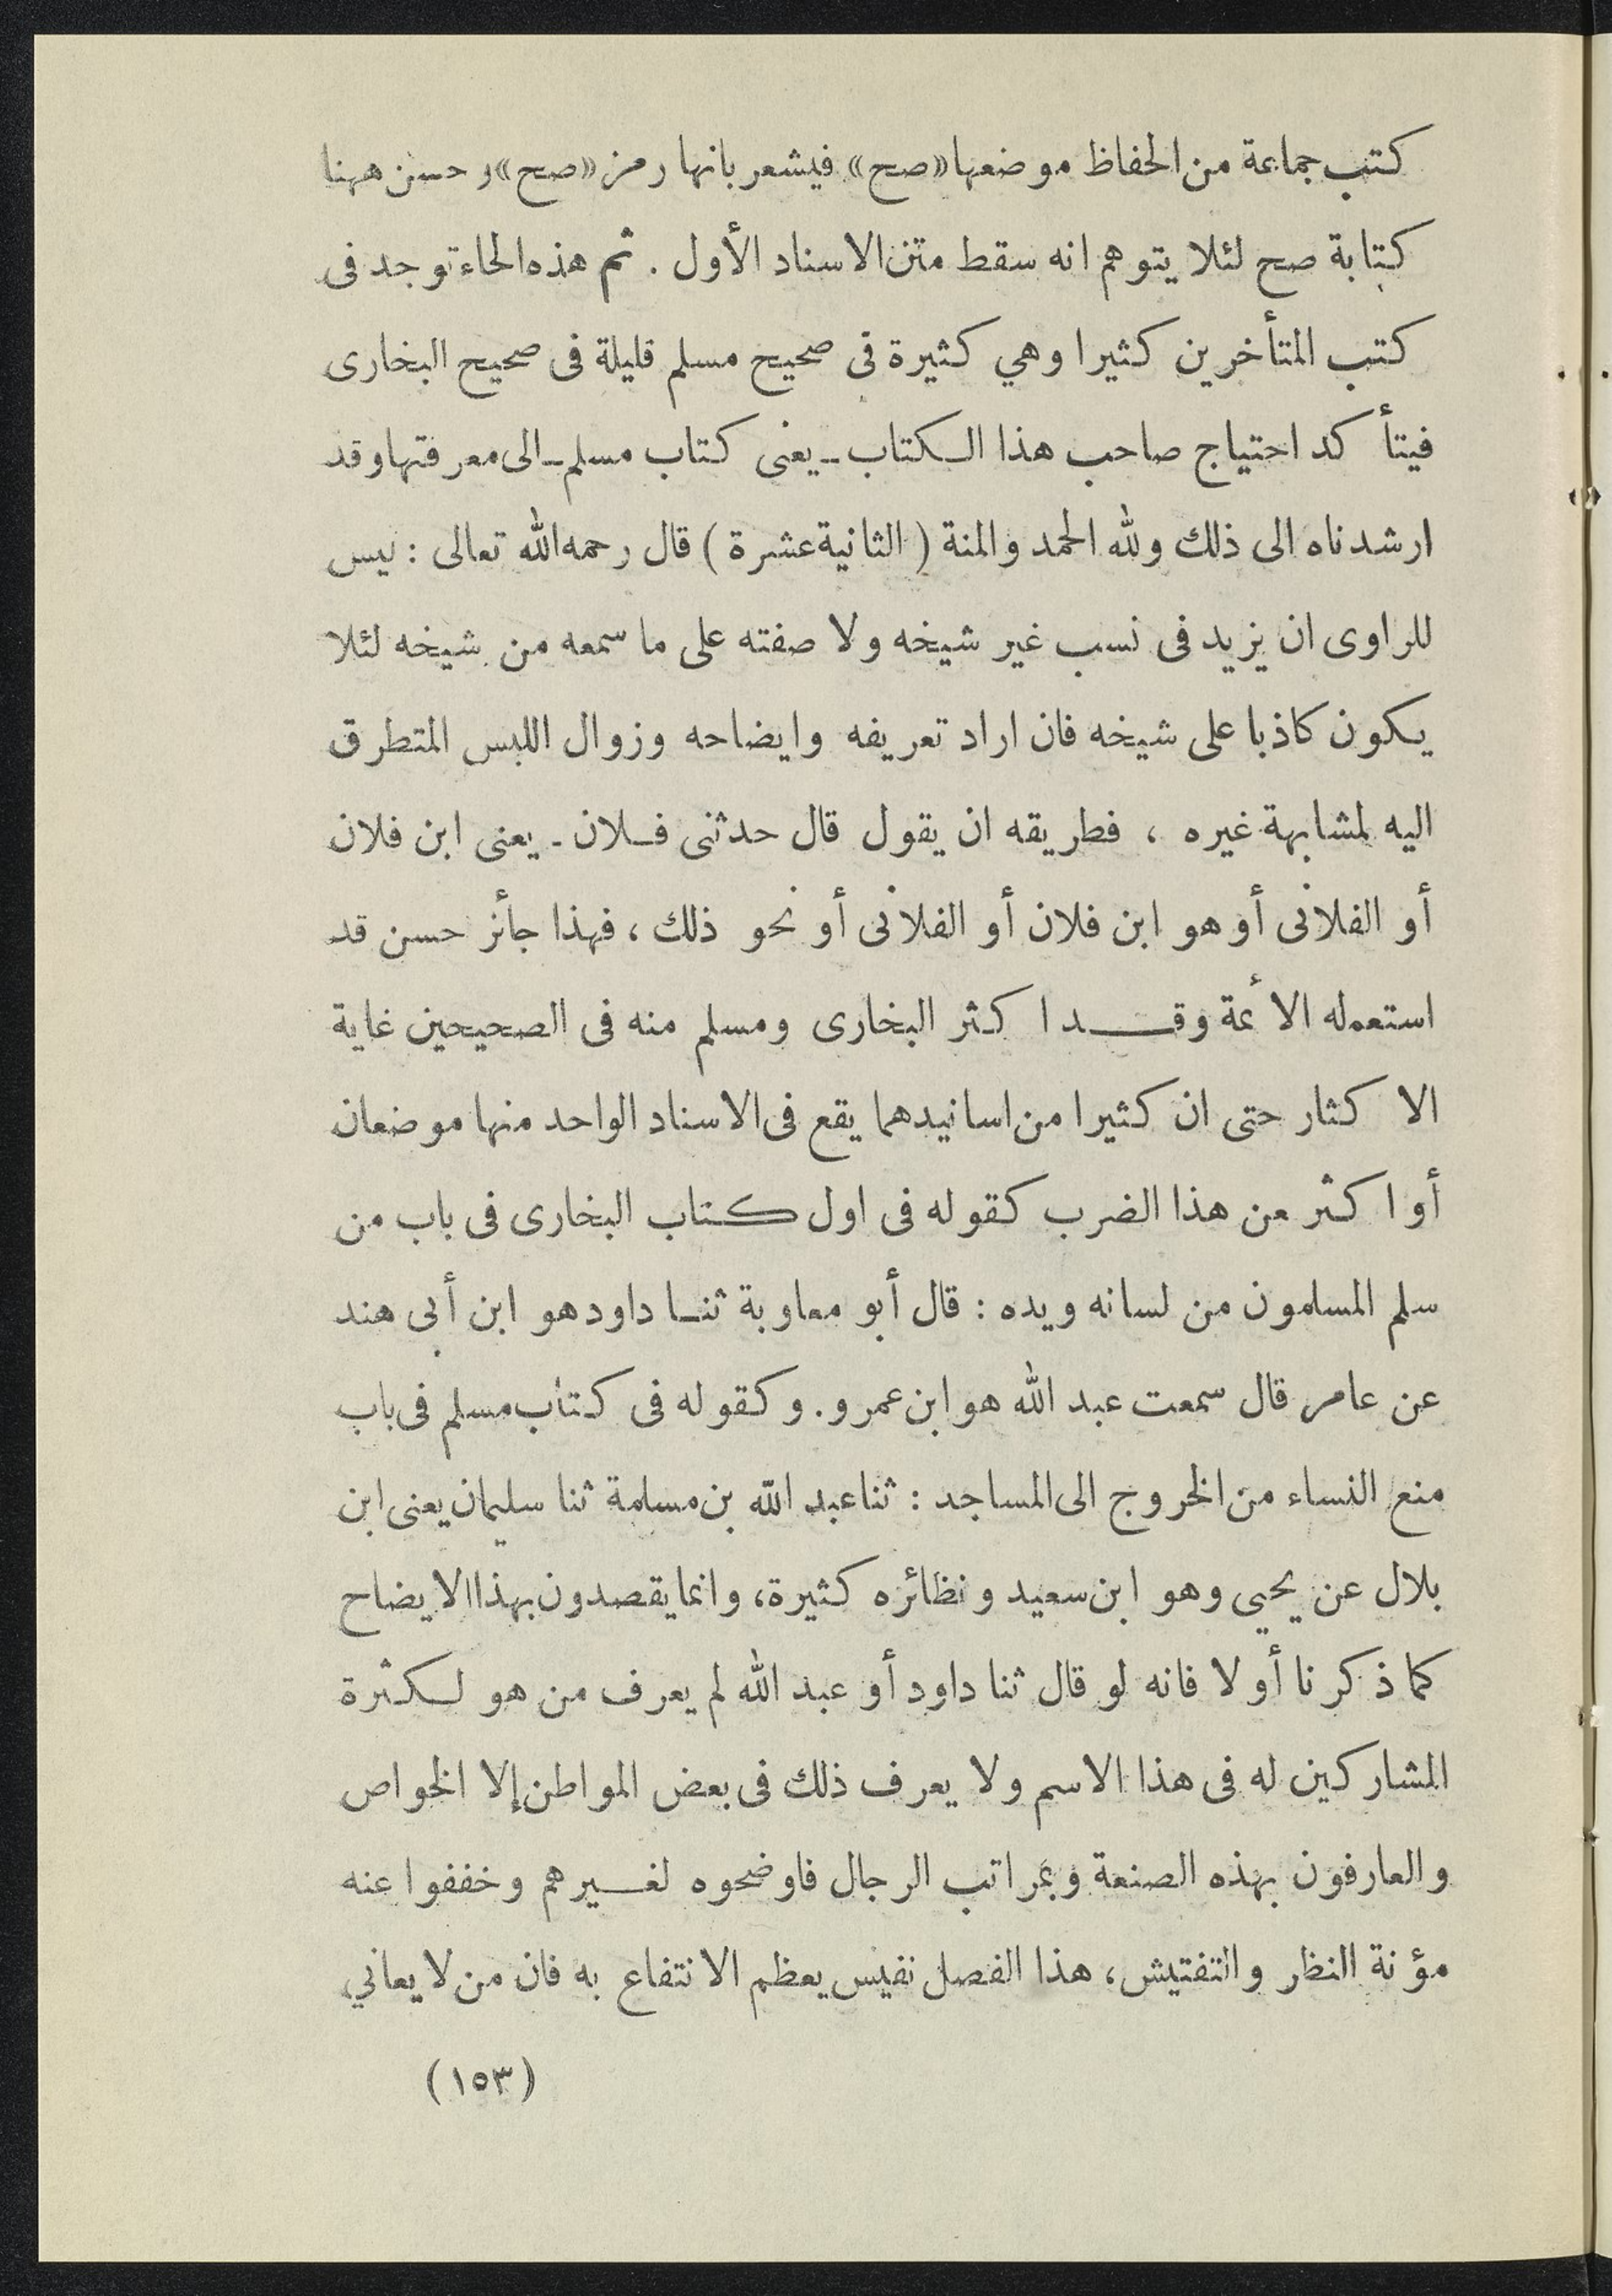 كتب جماعة من الحفاظ موضعها «صح» فيشعر بانها رمز «صح» وحسن ههنا
كتابة صح لئلا يتوهم انه سقط متن الاسناد الأول . ثم هذه الحاء توجد فى
كتب المتأخرين كثيرا وهي كثيرة فى صحيح مسلم قليلة فى صحيح البخارى
فيتأكد احتياج صاحب هذا الكتاب ـ يعنى كتاب مسلم ـ الى معرفتها وقد
ارشدناه الى ذلك ولله الحمد والمنة ( الثانية عشرة ) قال رحمه الله تعالى : ليس
للراوى ان يزيد فى نسب غير شيخه ولا صفته على ما سمعه من شيخه لئلا
يكون كاذبا على شيخه فان اراد تعريفه وايضاحه وزوال اللبس المتطرق
اليه لمشابهة غيره ، فطريقه ان يقول قال حدثنى فلان ـ يعنى ابن فلان
أو الفلانى أو هو ابن فلان أو الفلانى أو نحو ذلك ، فهذا جائز حسن قد
استعمله الائمة وقد اكثر البخارى ومسلم منه فى الصحيحين غاية
الاكثار حتى ان كثيرا من اسانيدهما يقع فى الاسناد الواحد منها موضعان
أو اكثر من هذا الضرب كقوله فى اول كتاب البخارى فى باب من
سلم المسلمون من لسانه ويده : قال أبو معاوية ثنا داود هو ابن أبى هند
عن عامر قال سمعت عبد الله هو ابن عمرو . وكقوله فى كتاب مسلم فى باب
منع النساء من الخروج الى المساجد : ثنا عبد الله بن مسلمة ثنا سليمان يعنى ابن
بلال عن يحيى وهو ابن سعيد ونظائره كثيرة، وانما يقصدون بهذا الايضاح
كما ذكرنا أولا فانه لو قال ثنا داود أو عبد الله لم يعرف من هو لكثرة
المشاركين له فى هذا الاسم ولا يعرف ذلك فى بعض المواطن إلا الخواص
والعارفون بهذه الصنعة وبمراتب الرجال فاوضحوه لغيرهم وخففوا عنه
مؤنة النظر والتفتيش، هذا الفصل نفيس يعظم الانتفاع به فان من لا يعاني
(١٥٣)